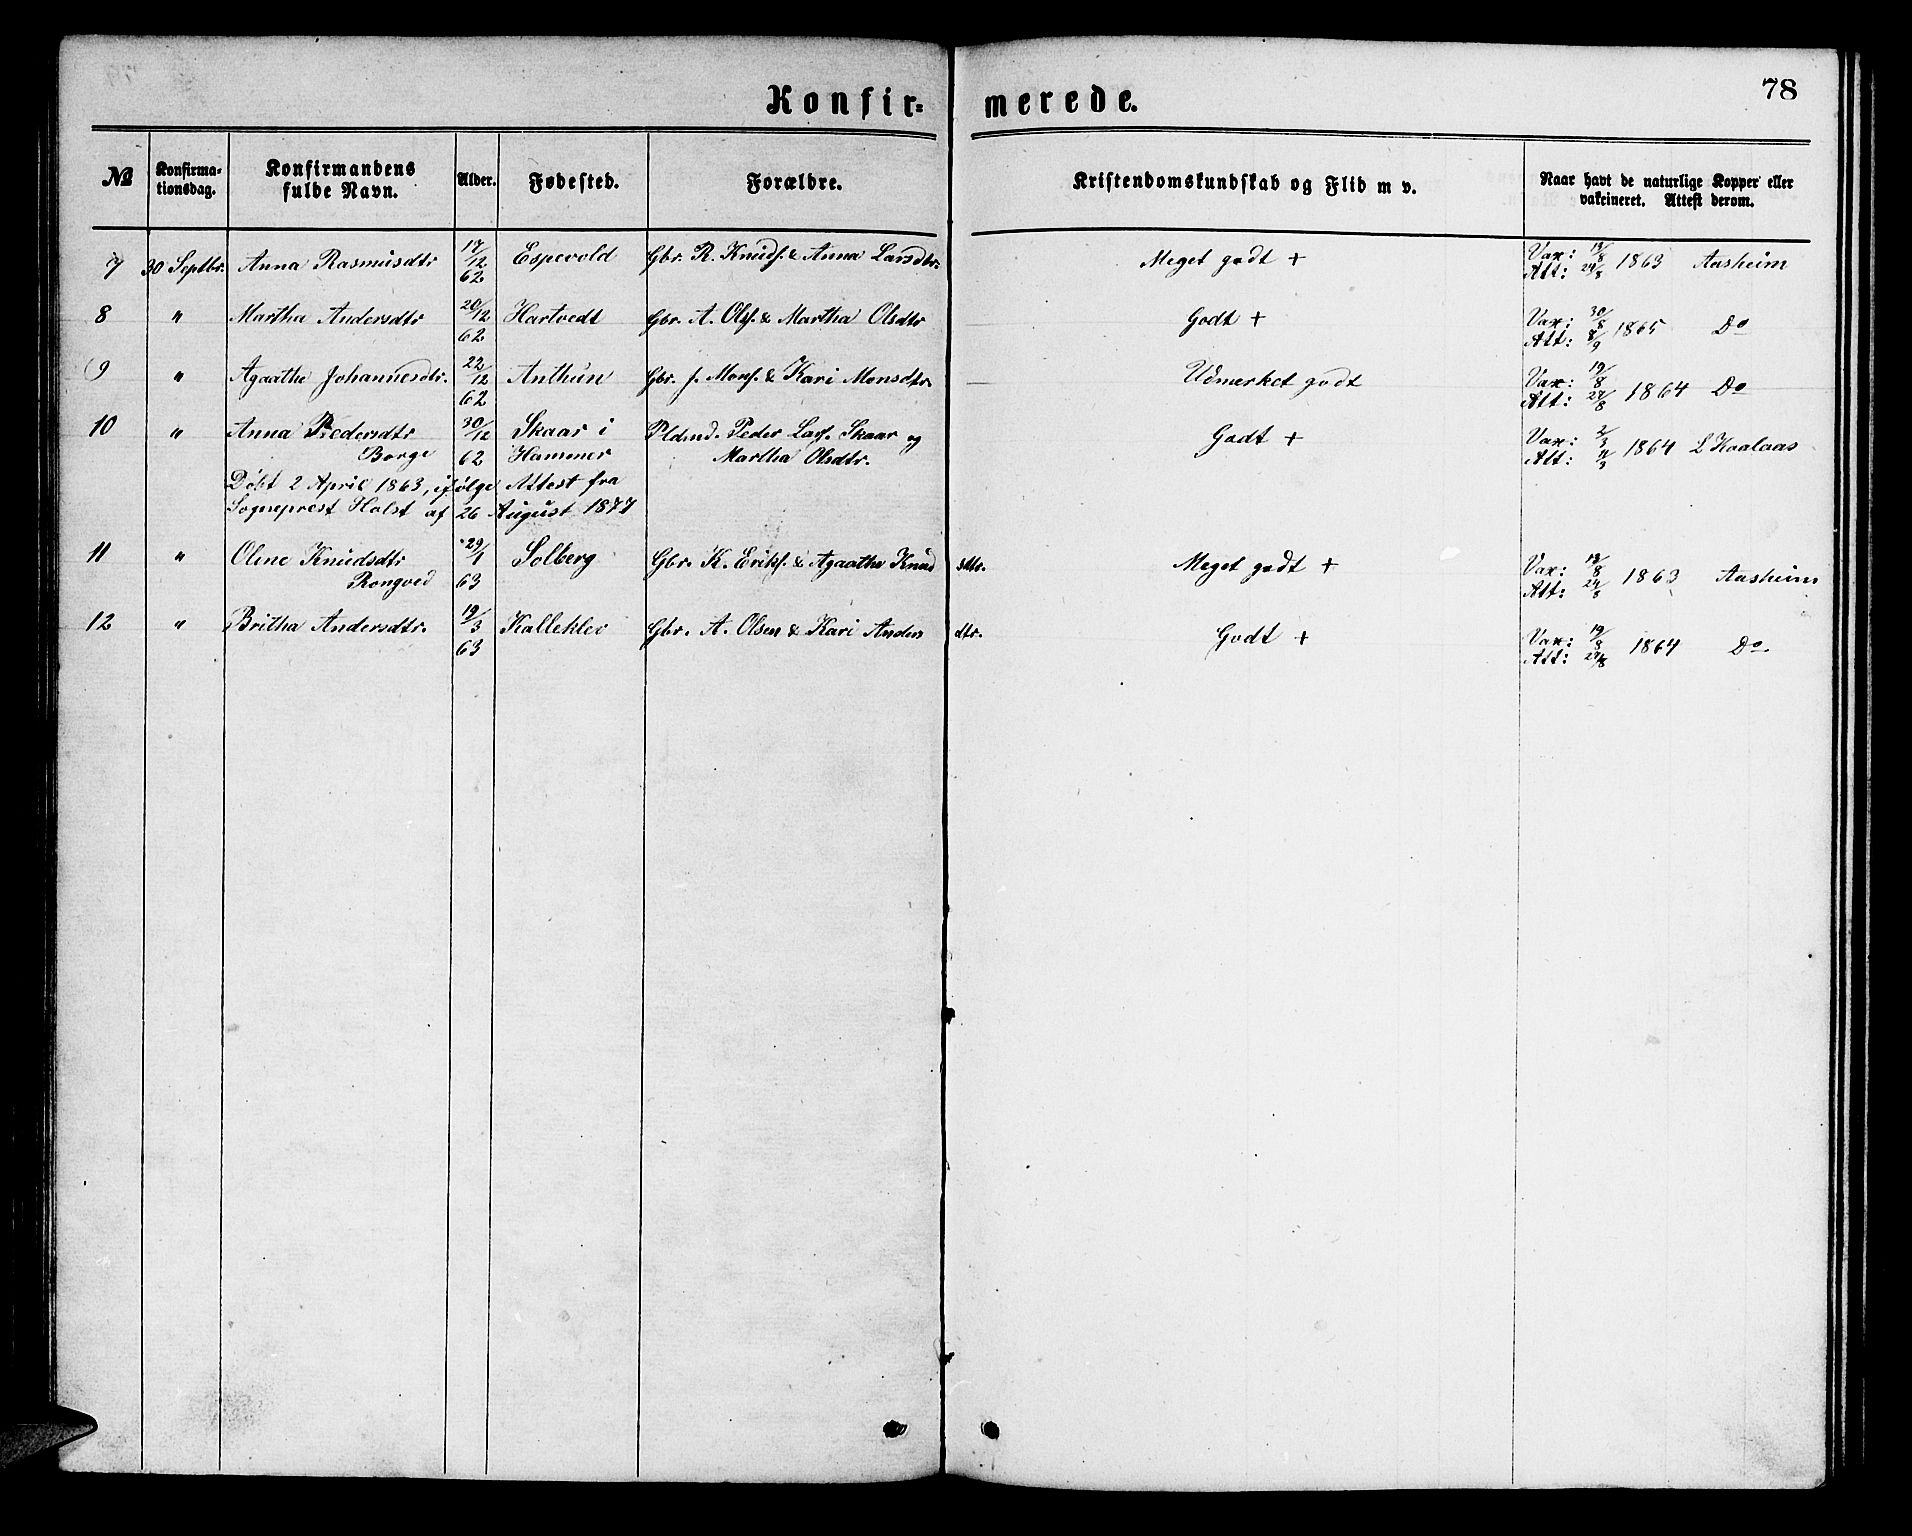 Konfirmerede.
78
№ Konfirmationsdag. Konfirmandens fulde Navn. Alder. Fødested. Forældre. Kristendomskundskab og Flid m v. Naar havt de naturlige Kopper eller vakcineret. Attest derom.
7 30 Septbr. Anna Rasmusdtr 17/12 62 Espevold Gbr. R. Knuds. & Anna Larsdtr. Meget godt + Vax: 13/8 Att: 24/8 1863 Aasheim
8 " Martha Andersdtr 20/12 62 Hartvedt Gbr. A. Ols. & Martha Olsdtr Godt + Vax: 30/8 Att: 8/9 1865 Do
9 " Agaathe Johannesdtr. 22/12 62 Anthun Gbr. J. Mons. & Kari Monsdtr. Udmerket godt Vax: 19/8 Att: 27/8 1864 Do
10 " Anna Pedersdtr 30/12 Skaar i Pldmd. Peder Lars. Skaar og Godt + Vax: 2/3 Att: 11/3 1864 L Kvalaas
Borge 62 Hammer Martha Olsdtr.
Døbt 2 April 1863, ifølge Attest fra
Sogneprest Holst af 26 August 1877
11 " Oline Knudsdtr 29/1 Solberg Gbr. K. Eriks. & Agaathe Knudsdtr. Meget godt + Vax: 13/8 Att: 24/8 1863 Aasheim
Rongved 63
12 " Britha Andersdtr. 19/3 63 Kalleklev Gbr. A. Olsen & Kari Andersdtr. Godt + Vax: 19/8 Att: 27/8 1864 Do